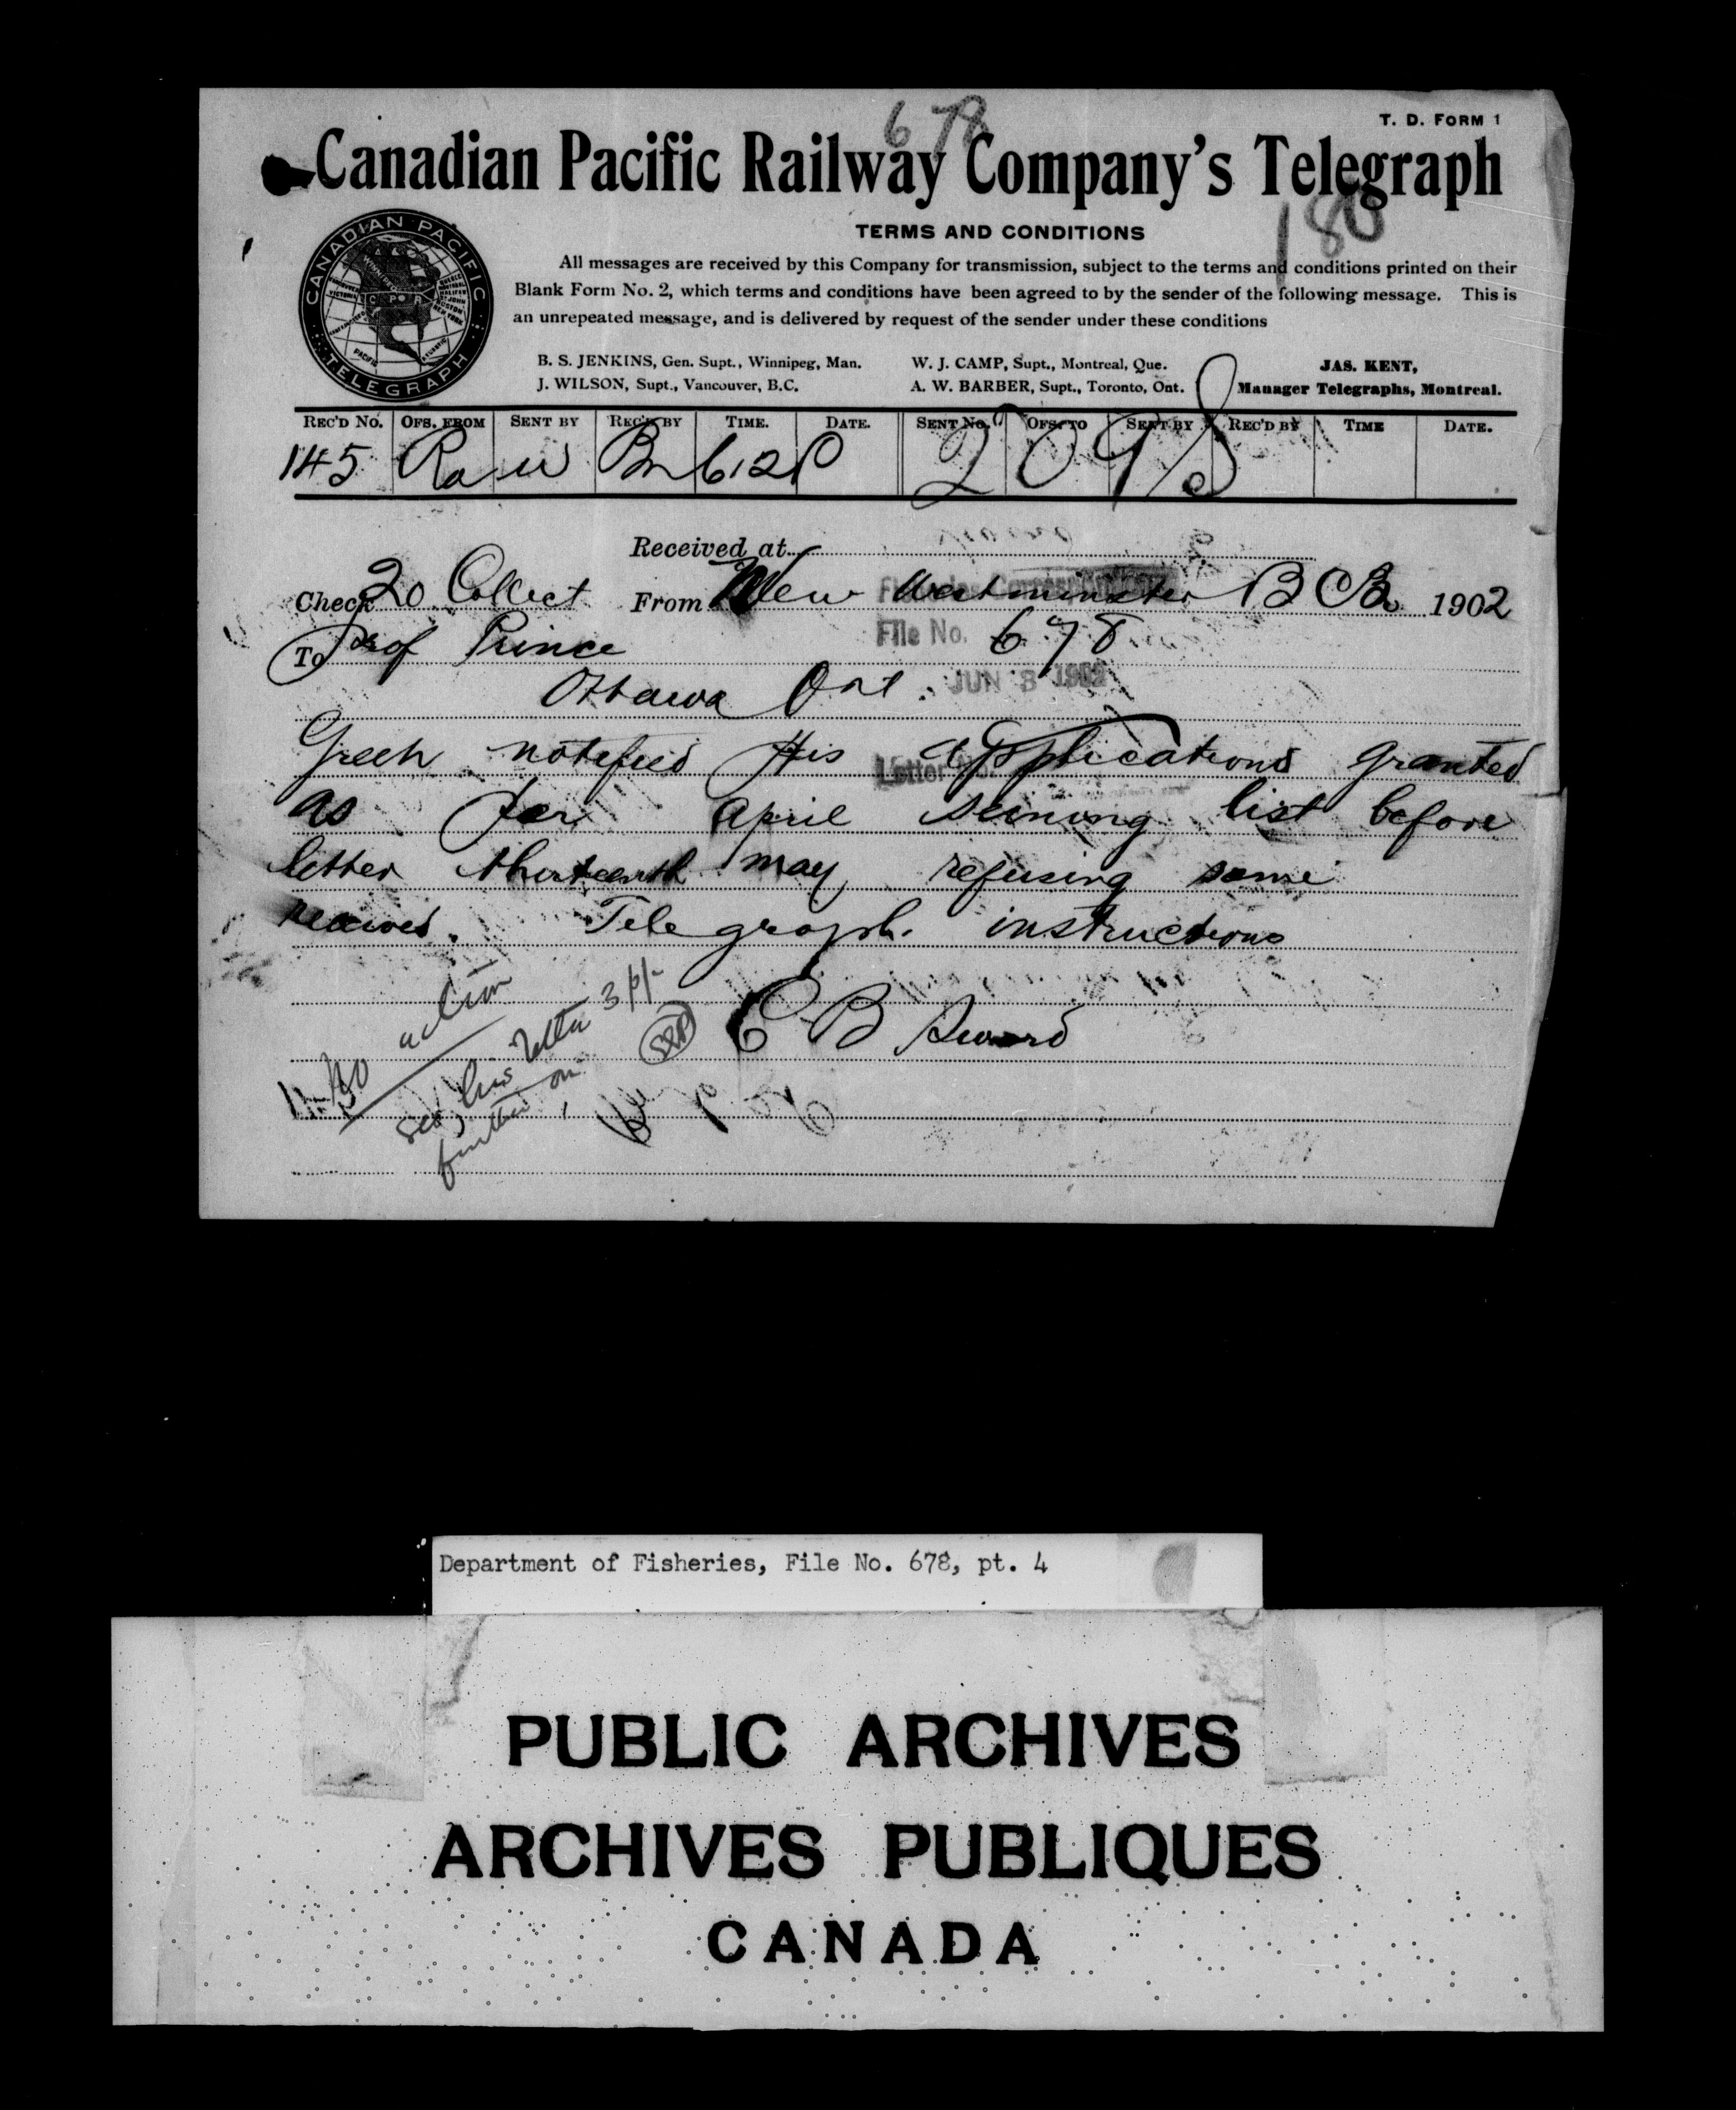 678
T. D. FORM 1
Canadian Pacific Railway Company's Telegraph
180
TERMS AND CONDITIONS
All messages are received by this Company for transmission, subject to the terms and conditions printed on their
Blank Form No. 2, which terms and conditions have been agreed to by the sender of the following message. This is
an unrepeated message, and is delivered by request of the sender under these conditions
CANADIAN PACIFIC
TELEGRAPH
B. S. JENKINS, Gen. Supt., Winnipeg, Man.
J. WILSON, Supt., Vancouver, B.C.
W. J. CAMP, Supt., Montreal, Que.
A. W. BARBER, Supt., Toronto, Ont.
JAS. KENT,
Manager Telegraphs, Montreal.
REC'D NO. OFS. FROM SENT BY REC'D BY TIME. DATE. SENT NO. OFS. TO SENT BY REC'D BY TIME DATE.
145 Ra w Bn 612P
Received at
Check 20 Collect From New Westminster B C 2 1902
Fisheries Correspondence
To Prof Prince
File No. 678
Ottawa Ont.
JUN 3 1902
Greeh notified His applications granted
Letter No.
as per april seining list before
letter thirteenth may refusing same
received. Telegraph. instructions
C B Sword
No action
see his letter 3/6/-
further on
Department of Fisheries, File No. 678, pt. 4
PUBLIC ARCHIVES
ARCHIVES PUBLIQUES
CANADA